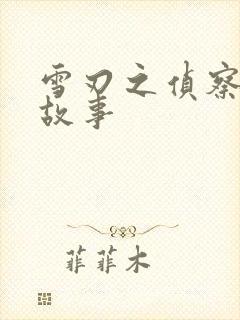 雪刃之偵察
故事
菲菲木